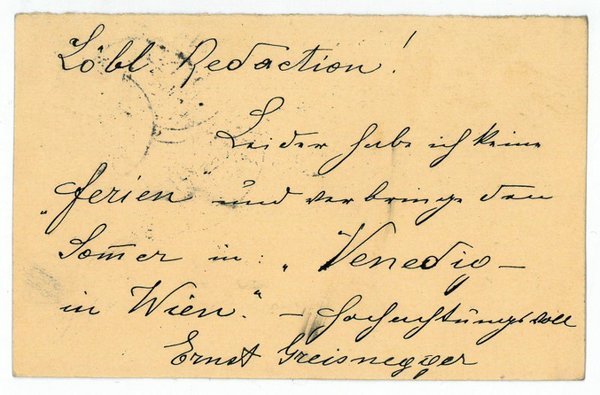 Löbl Redaction!
Leider habe ich keine
„ferien und verbringe den
Sommer in: „Venedig –
in Wien." – Hochachtungsvoll
Ernst Greisnegger